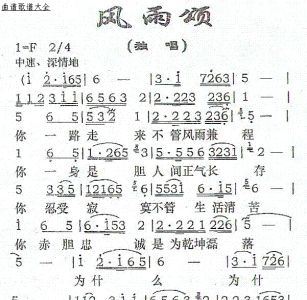 曲谱歌谱大全
风雨颂
1=F 2/4
(独 唱)
中速、深情地
(i 2·i65 | 6 — | 3·i 7263 | 5 — |
112 3 i i | 6 5 6 3 2 | 2·223 236 | 1 — |
5 6 5 | 5 3 2 | 2·223 2365 | 5 — |
你 一 路 走 来 不 管 风 雨 兼 程
1 6 5 | 1·265 | 5·556 3231 | 2 — |
你 一 身 是 胆 人 间 正 气 长 存
5 335 | 12165 | 5531 6·i5 |
你 忍受 寂 寞不管 生 活清 苦
i 6 5 | 6·i53 | 2·221 226 | 5 — |
你 赤 胆 忠 诚 是 为 乾 坤 磊 落
5 — | i 2·i65 | 6 — | 3·i 726 |
为 什 么 为 什